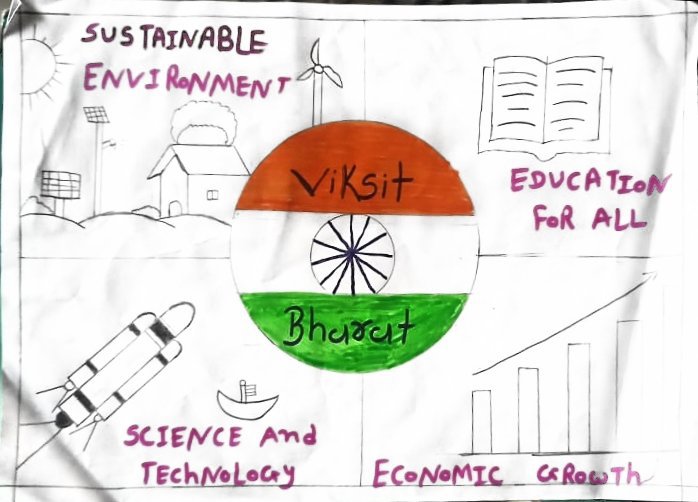 SUSTAINABLE
ENVIRONMENT
EDUCATION
FOR ALL
Viksit
Bharat
SCIENCE And
TECHNOLOGY
ECONOMIC GROWTh